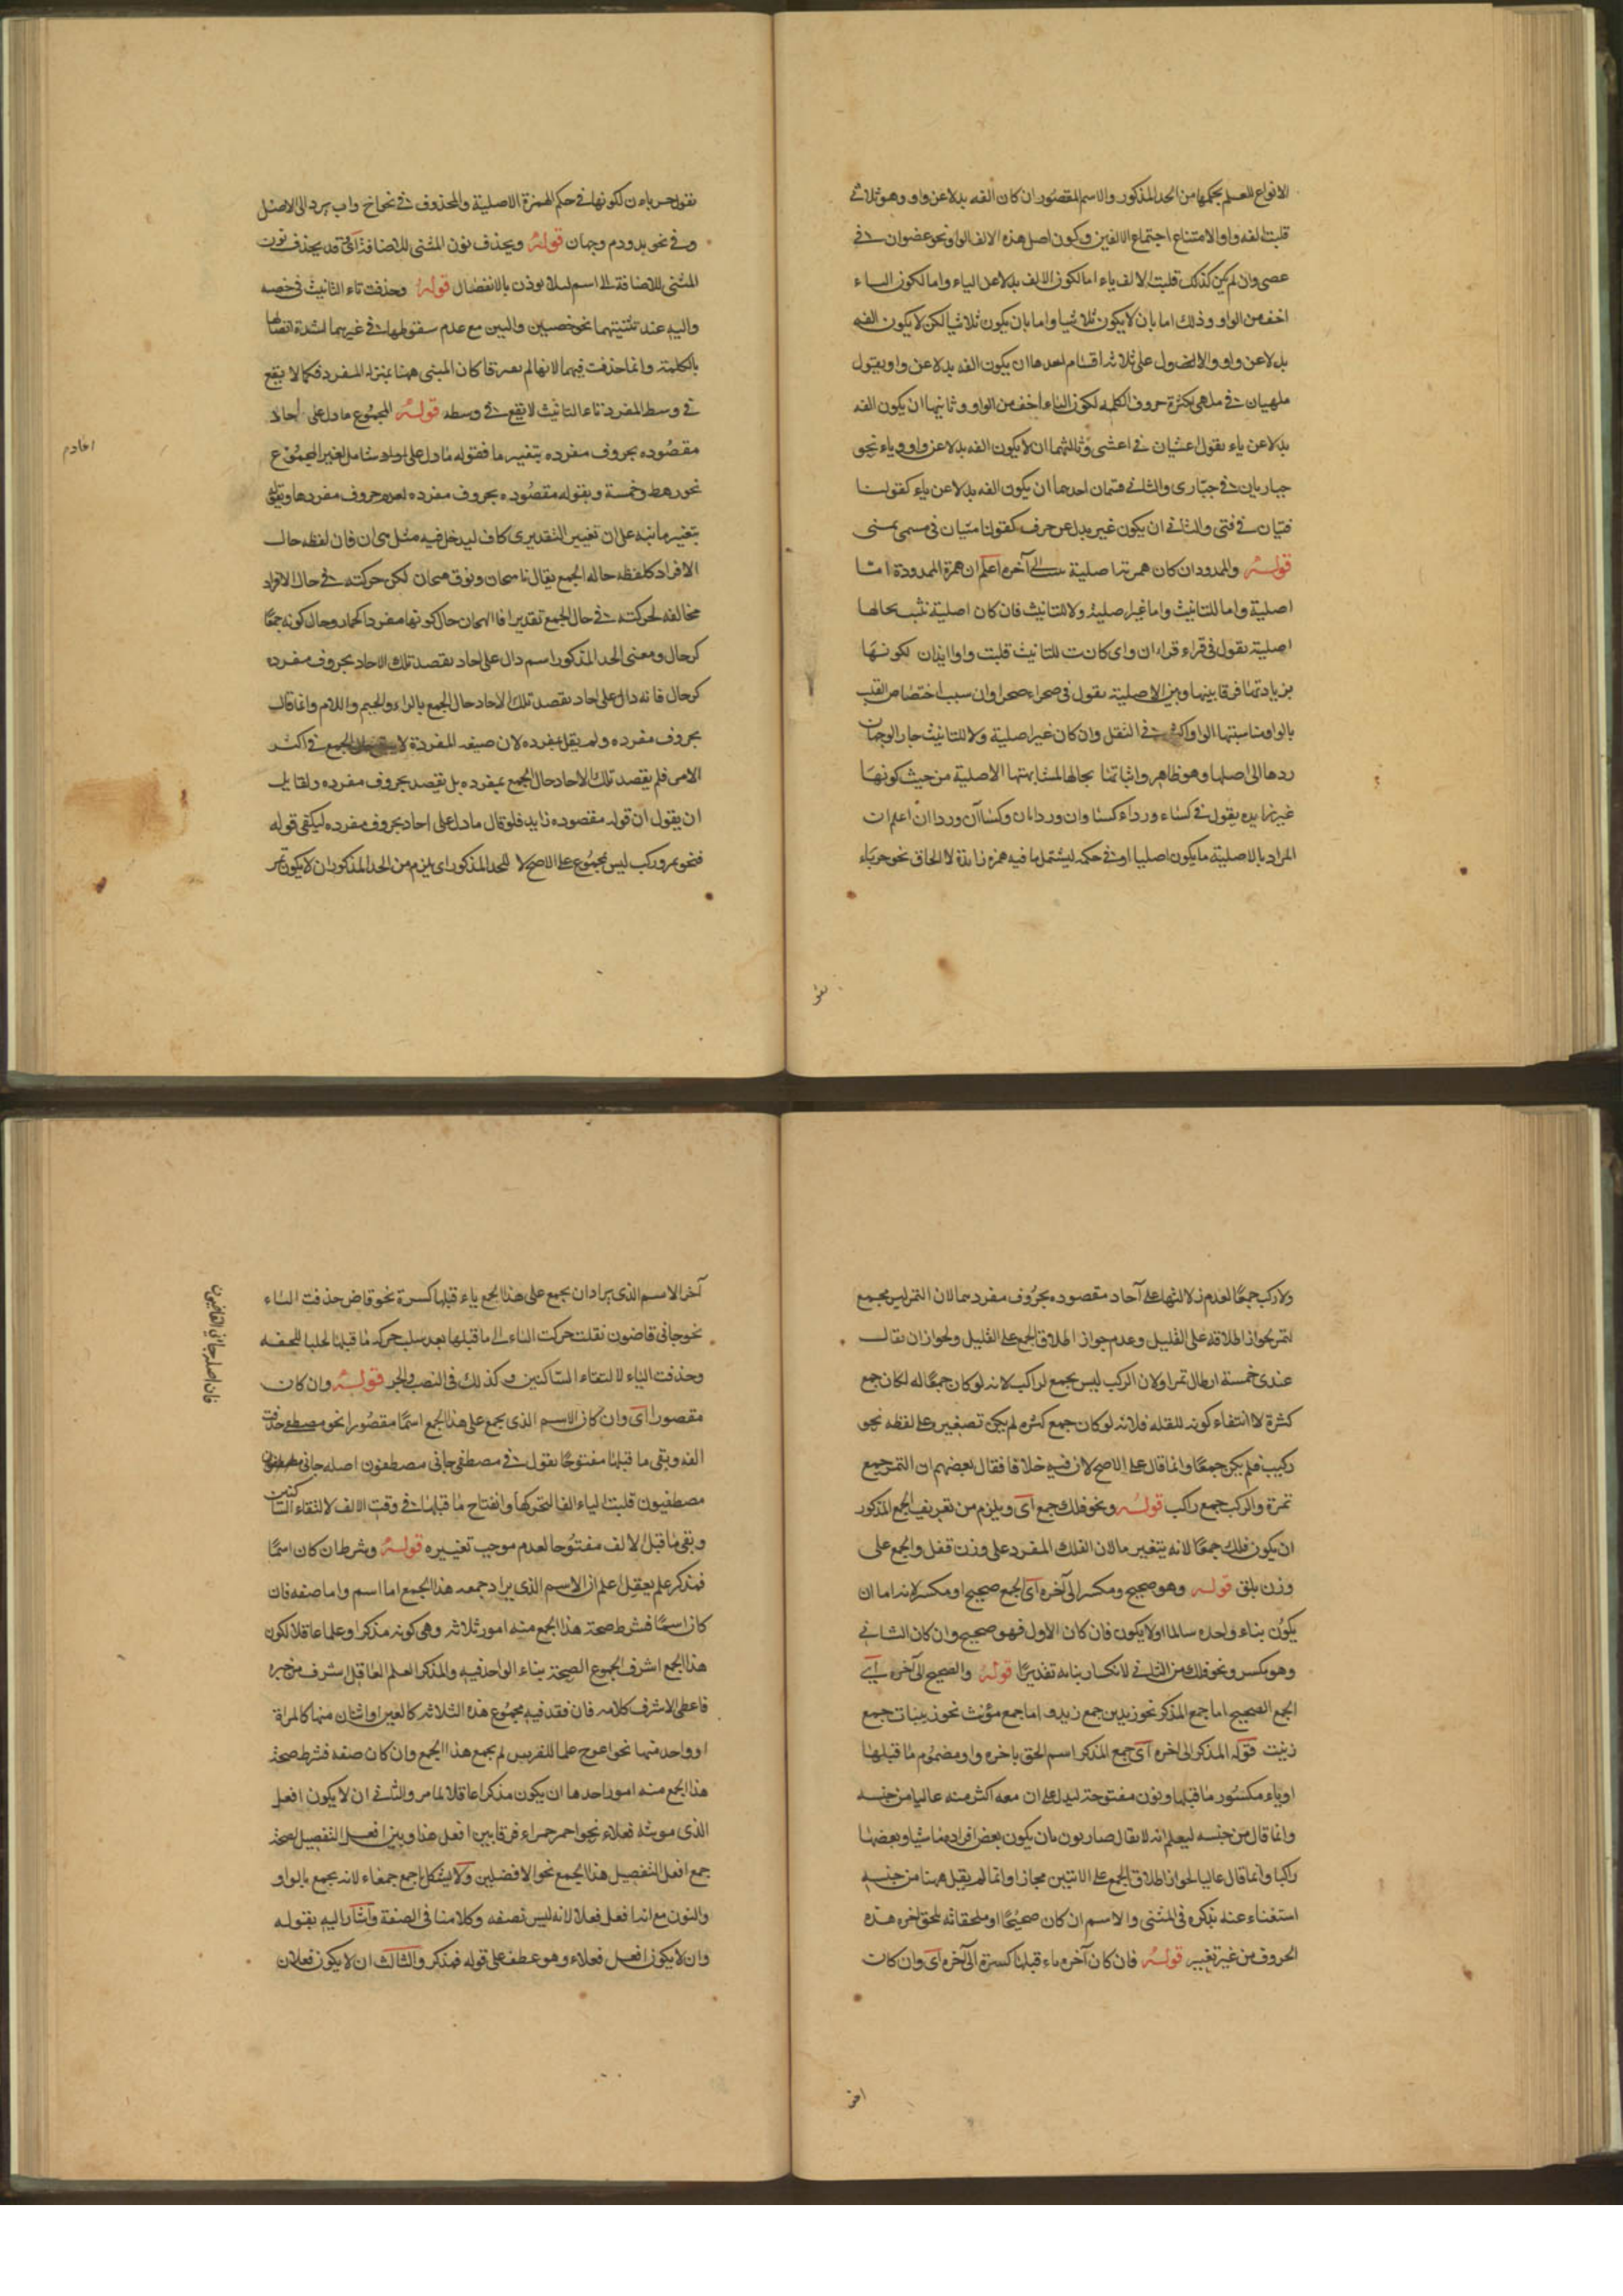 الانواع للعلم بحكمها من الحد المذكور والاسم المقصور ان كان الفه بدلا عن واو وهو ثلاثي
قلبت الفه واوا لامتناع اجتماع الالفين وكون اصل هذه الالف الواو نحو عضوان في
عصى وان لم يكن كذلك قلبت الالف ياء اما لكون الالف بدلا عن الياء واما لكون الياء
اخف من الواو وذلك اما بان لا يكون ثلاثيا واما بان يكون ثلاثيا لكن لا يكون الفه
بدلا عن واو والاول على ثلاثة اقسام احدها ان يكون الفه بدلا عن واو يقول
ملهيان في ملهى لكثرة حروف الكلمة لكون الياء اخف من الواو وثانيها ان يكون الفه
بدلا عن ياء يقول اعشيان في اعشى وثالثها ان لا يكون الفه بدلا عن واو وياء نحو
حباريان في حبارى والثاني قسمان احدهما ان يكون الفه بدلا عن ياء كقولنا
فتيان في فتى والثاني ان يكون غير بدل عن حرف كقولنا متيان في مسمى بمتى
قوله والممدود ان كان همزتها صلية الى آخره اعلم ان همزة الممدودة اما
اصلية واما للتانيث واما غير صلية ولا للتانيث فان كان اصلية تثبت بحالها
اصلية يقول في قراء قراءان وان كانت للتانيث قلبت واوا ايذان لكونها
بزيادتها فرقا بينها وبين الاصلية يقول في صحراء صحراوان سبب اختصاص القلب
بالواو مناسبتها الواو في الثقل وان كان غير اصلية ولا للتانيث جاز الوجهان
ردها الى اصلها وهو ظاهر واثباتها بحالها لمشابهتها الاصلية من حيث كونها
غير زايده يقول في كساء ورداء كساوان ورداءان وكساآن ورداان اعلم ان
المراد بالاصلية ما يكون اصليا او في حكمه ليشتمل ما فيه همزه زايدة لا الحاق نحو حرباء
نقو
نقول حرباءن لكونها في حكم الهمزة الاصلية والمحذوف في نحو اخ واب يرد الى الاصل
وفي نحو يد ودم وجهان قوله ويحذف نون المثنى للاضافة اى قد يحذف نون
المثنى للاضافة الى اسم لئلا يوذن بالانفصال قوله وحذفت تاء التانيث في خصيه
واليه عند تثنيتهما نحو خصيين واليين مع عدم سقوطها في غيرهما لشدة اتصالها
بالكلمة وانما حذفت فيهما لانهما لم كان المبنى ههنا بمنزلة المفرد فكما لا يقع
في وسط المفرد تاء التانيث لا يقع في وسطه قوله المجموع ما دل على احاد
مقصوده بحروف مفرده بتغيير ما فقوله ما دل على احاد شامل لغير المجموع
نحو رهط وخمسة وبقوله مقصوده بحروف مفرده لعدم حروف مفردها وبقوله
بتغيير ما نبه على ان تغيير التقديرى كاف ليدخل فيه مثل هجان فان لفظه حال
الافراد كلفظه حالة الجمع يقال ناقة هجان ونوق هجان لكن حركته في حال الافراد
مخالفه لحركته في حال الجمع تقديرا فالهجان حال كونها مفردا كحمار وحال كونه جمعا
كرجال ومعنى الحد المذكور اسم دال على احاد يقصد تلك الاحاد بحروف مفرده
كرجال فانه دال على احاد يقصد تلك الاحاد حال الجمع بالراء والجيم واللام وانما قال
بحروف مفرده ولم يقل بمفرده لان صيغه المفردة الجمع في اكثر
الامر فلم يقصد تلك الاحاد حال الجمع بمفرده بل يقصد بحروف مفرده ولقايل
ان يقول ان قوله مقصوده زايد فلو قال ما دل على احاد بحروف مفرده ليكفى قوله
فنحو تمر وركب ليس بمجموع على الاصح لا للحد المذكور اى يلزم من الحد المذكور ان لا يكون تمر
ولا ركب جمعا لعدم دلالتها على آحاد مقصوده بحروف مفردهما لان التمر ليس بجمع
لتمر لجواز اطلاقه على القليل وعدم جواز اطلاق الجمع على القليل ولجواز ان يقال
عندى خمسة ارطال تمرا ولان الركب ليس بجمع لراكب لانه لو كان جمعا له لكان جمع
كثرة لا انتفاء كونه للقله فلانه لو كان جمع كثره لم يكن تصغيره على لفظه نحو
ركيب فلم يكن جمعا وانما قال على الاصح لان فيه خلافا فقال بعضهم ان التمر جمع
تمرة والركب جمع راكب قوله ونحو فلك جمع اى ويلزم من تعريف الجمع المذكور
ان يكون فلك جمعا لانه بتغيير ما لان الفلك المفرد على وزن قفل والجمع على
وزن بلق قوله وهو صحيح ومكسر الى آخره اى الجمع صحيح او مكسر لانه اما ان
يكون بناء واحده سالما اولا يكون فان كان الاول فهو صحيح وان كان الثاني
وهو مكسر ونحو فلك من الثاني لانكسار بنائه تقديرا قوله والصحيح الى آخره اى
الجمع الصحيح اما جمع المذكر نحو زيدين جمع زيد واما جمع مؤنث نحو زينبات جمع
زينب قوله المذكر الى اخره اى جمع المذكر اسم الحق باخره واو مضموم ما قبلها
او ياء مكسور ما قبلها ونون مفتوحة ليدل على ان معه اكثر منه عاليا من جنسه
وانما قال من جنسه ليعلم انه لا يقال ضاربون بان يكون بعض افراده ماشيا وبعضها
راكبا وانما قال عاليا لجواز اطلاق الجمع على الاثنين مجازا وانما لم يقل ههنا من جنسه
استغناء عنه بذكره في المثنى والاسم ان كان صحيحا او ملحقاته لحق اخره هذه
الحروف من غير تغيير قوله فان كان آخره ياء قبلها كسرة الى آخره اى وان كان
اخر
آخر الاسم الذى يراد ان يجمع على هذا الجمع ياء قبلها كسرة نحو قاض حذفت الياء
نحو جانى قاضون نقلت حركت الياء الى ما قبلها بعد سلب حركه ما قبلها للخفه
وحذفت الياء لالتقاء الساكنين وكذلك في النصب والجر قوله وان كان
مقصورا اى وان كان الاسم الذى يجمع على هذا الجمع اسما مقصورا نحو مصطفى حذفت
الفه وبقى ما قبلها مفتوحا يقول في مصطفى جانى مصطفون اصله جانى
مصطفيون قلبت الياء الفا لتحركها وانفتاح ما قبلها في وقت الالف لالتقاء الساكنين
وبقى ما قبل الالف مفتوحا لعدم موجب تغييره قوله وشرط ان كان اسما
فمذكر علم يعقل اعلم ان الاسم الذى يراد جمعه هذا الجمع اما اسم واما صفه فان
كان اسما فشرط صحة هذا الجمع منه امور ثلاثه وهى كونه مذكرا وعلما عاقلا لكون
هذا الجمع اشرف الجموع الصحة بناء الواحد فيه والمذكر العلم العاقل اشرف من غيره
فاعطى الاشرف كلامه فان فقد فيه مجموع هذه الثلاثه كالعين او اثنان منها كالمراة
او واحد منها نحو اعوج علما للفرس لم يجمع هذا الجمع وان كان صفه فشرط صحة
هذا الجمع منه امور احدها ان يكون مذكرا عاقلا لما مر والثاني ان لا يكون افعل
الذى مونثه فعلاء نحو احمر حمراء فرقا بين افعل هذا وبين افعل التفضيل لصحة
جمع افعل التفضيل هذا الجمع نحو الافضلين ولا يشكل اجمع جمعاء لانه يجمع بالواو
والنون مع انه افعل فعلاء لانه ليس بصفه وكلامنا في الصفة واشار اليه بقوله
وان لا يكون افعل فعلاء وهو عطف على قوله فمذكر والثالث ان لا يكون فعلان